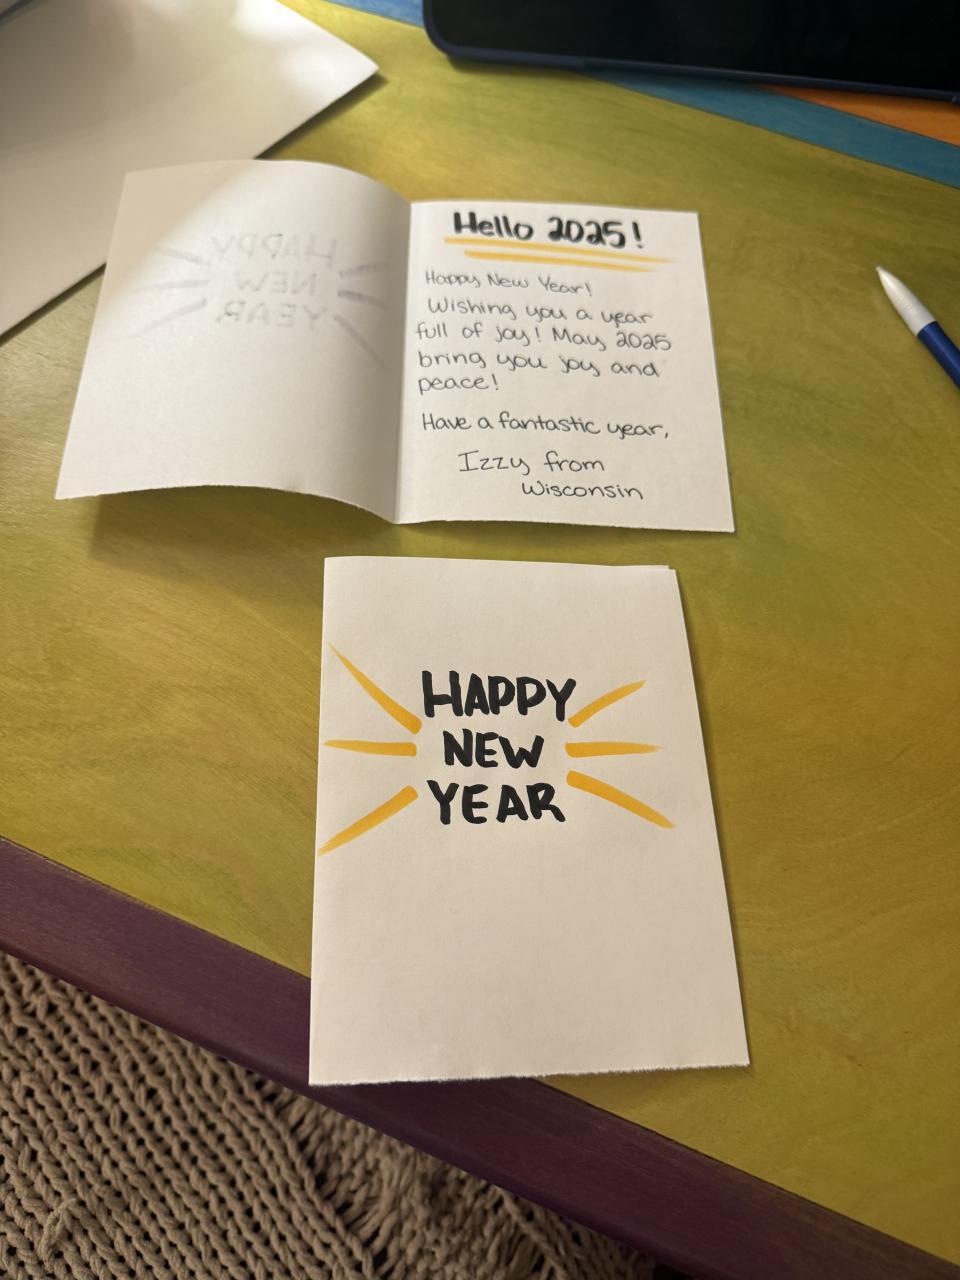 Hello 2025!
Happy New Year!
Wishing you a year
full of joy! May 2025
bring you joy and
peace!
Have a fantastic year,
Izzy from
Wisconsin
HAPPY
NEW
YEAR
HAPPY
NEW
YEAR